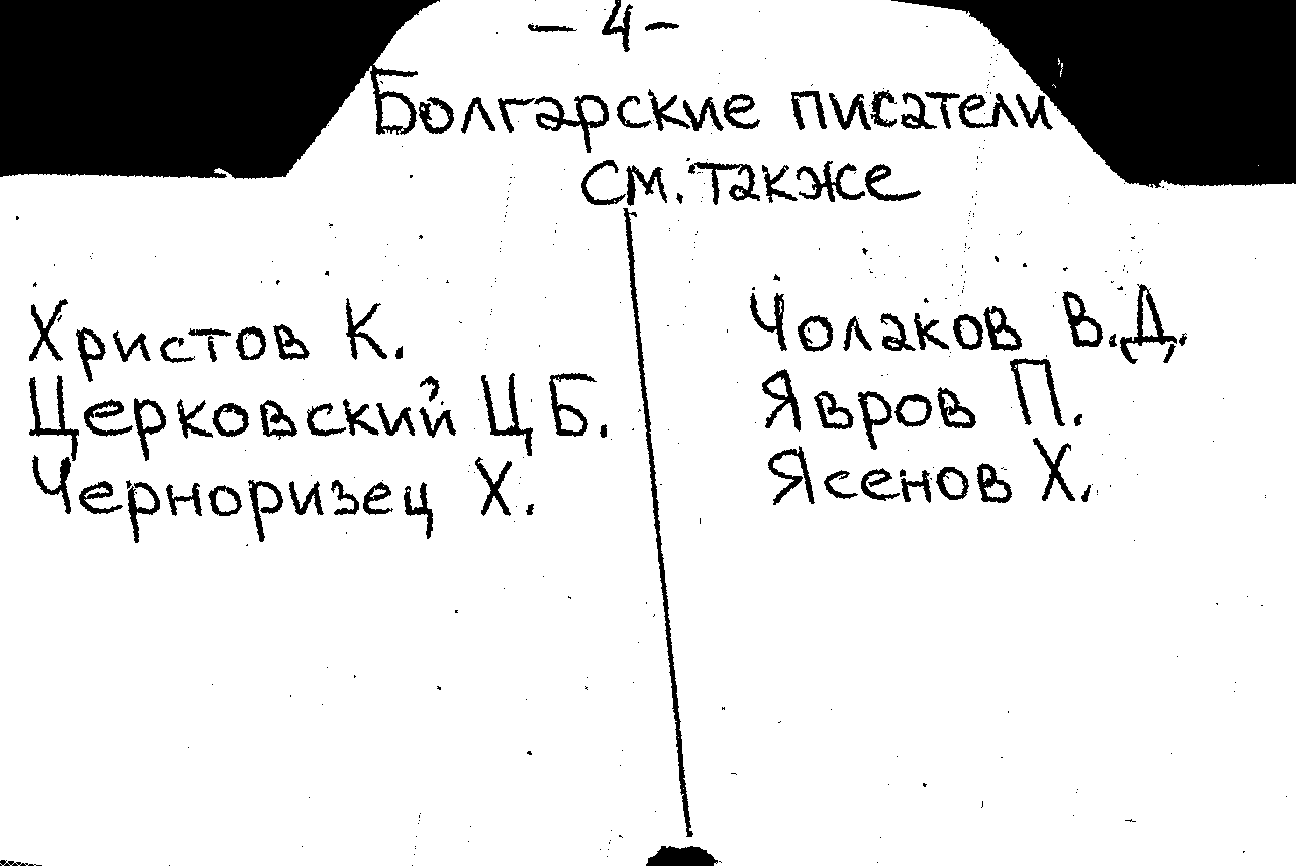 — 4 —
Болгарские писатели
см. также
Христов К.
Церковский Ц Б.
Черноризец Х.
Чолаков В.Д.
Явров П.
Ясенов Х.